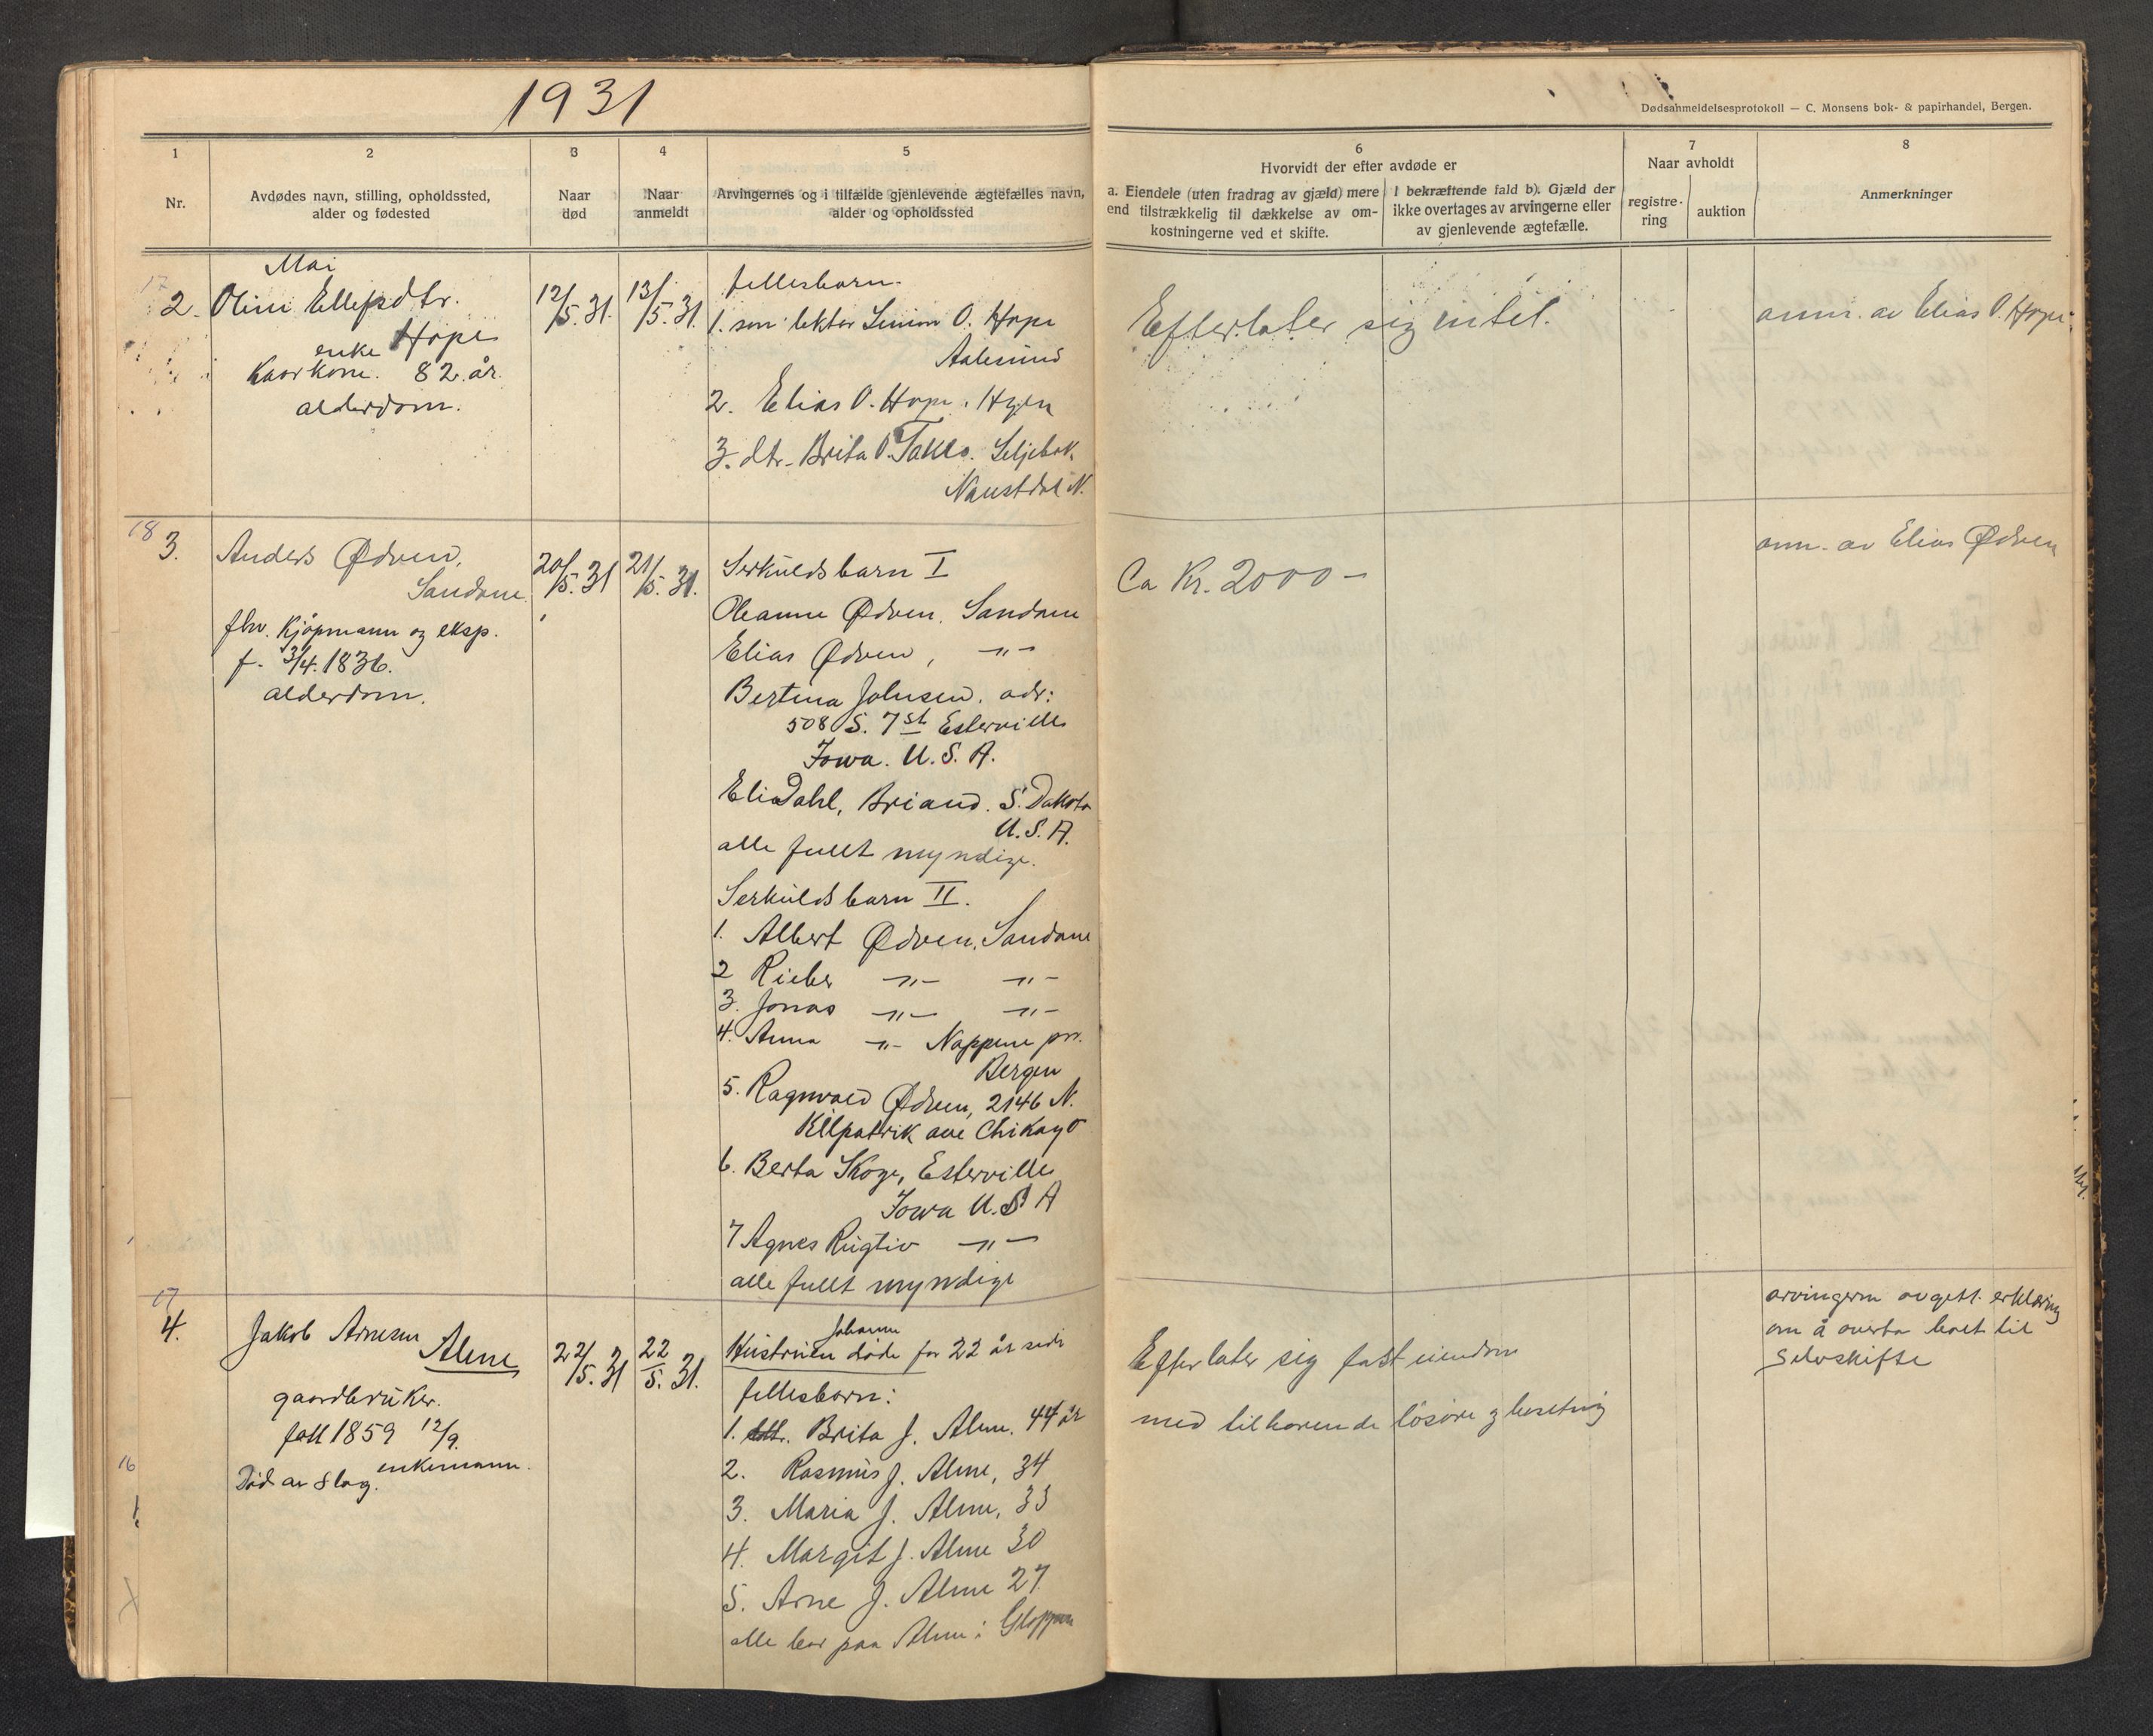 1931
Dødsanmeldelsesprotokoll — C. Monsens bok- & papirhandel, Bergen.
1
Nr.
2
Avdødes navn, stilling, opholdssted,
alder og fødested
3
Naar
død
4
Naar
anmeldt
5
Arvingernes og i tilfælde gjenlevende ægtefælles navn,
alder og opholdssted
6
Hvorvidt der efter avdøde er
a. Eiendele (uten fradrag av gjæld) mere
end tilstrækkelig til dækkelse av om-
kostningerne ved et skifte.
I bekræftende fald b). Gjæld der
ikke overtages av arvingerne eller
av gjenlevende ægtefælle.
7
Naar avholdt
registre-
ring
auktion
8
Anmerkninger
Mai
17
2.
Olini Ellefsdtr.
Hope
enke
Kaarkone. 82 år.
alderdom.
12/5. 31.
13/5. 31.
fellesbarn.
1. søn lektor Simon O. Hope
Aalesund
2. Elias O. Hope. Hyen
3. dtr. Brita O. Takle. Seljebot.
Naustdal N.
Efterlater sig intet.
anm. av Elias O. Hope
18
3.
Anders Ødven,
Sandane.
fhv. Kjøpmann og eksp.
f. 3/4. 1836.
alderdom.
20/5. 31
21/5. 31.
Serkuldsbarn I
Oleanne Ødven. Sandane
Elias Ødven, -"-
Bertina Johnsen. adr:
508 S. 7 st Esterville
Iowa. U. S. A.
Eli Dahl, Briand. S. Dakota
U. S. A.
alle fullt myndige.
Serkuldsbarn II.
1. Albert Ødven. Sandane
2 Rieber -"- -"-
3. Jonas -"- -"-
4. Anna -"- Nappene pr.
Bergen
5. Ragnvald Ødven, 2146 N.
Kilpatrik ave Chikago
6. Berta Skoge, Esterville
Iowa U. S A
7 Agnes Rugtiv -"-
alle fullt myndige
Ca Kr. 2000 -
anm. av Elias Ødven
17
4.
Jakob Arnesen
Alme
gaardbruker.
født 1859 12/9.
enkemann.
Død av slag.
22/5. 31
22/5. 31.
Johanne
Hustruen døde for 22 år siden
fellesbarn:
1. Brita J. Alme. 44 år
2. Rasmus J. Alme, 34
3. Maria J. Alme, 33
4. Margit J. Alme 30
5. Arne J. Alme 27
alle bor paa Alme i Gloppen
Efterlater sig fast eiendom
med tilhørende løsøre og besetning
arvingerne avgett. erklæring
om å overta boet til
selvskifte
16